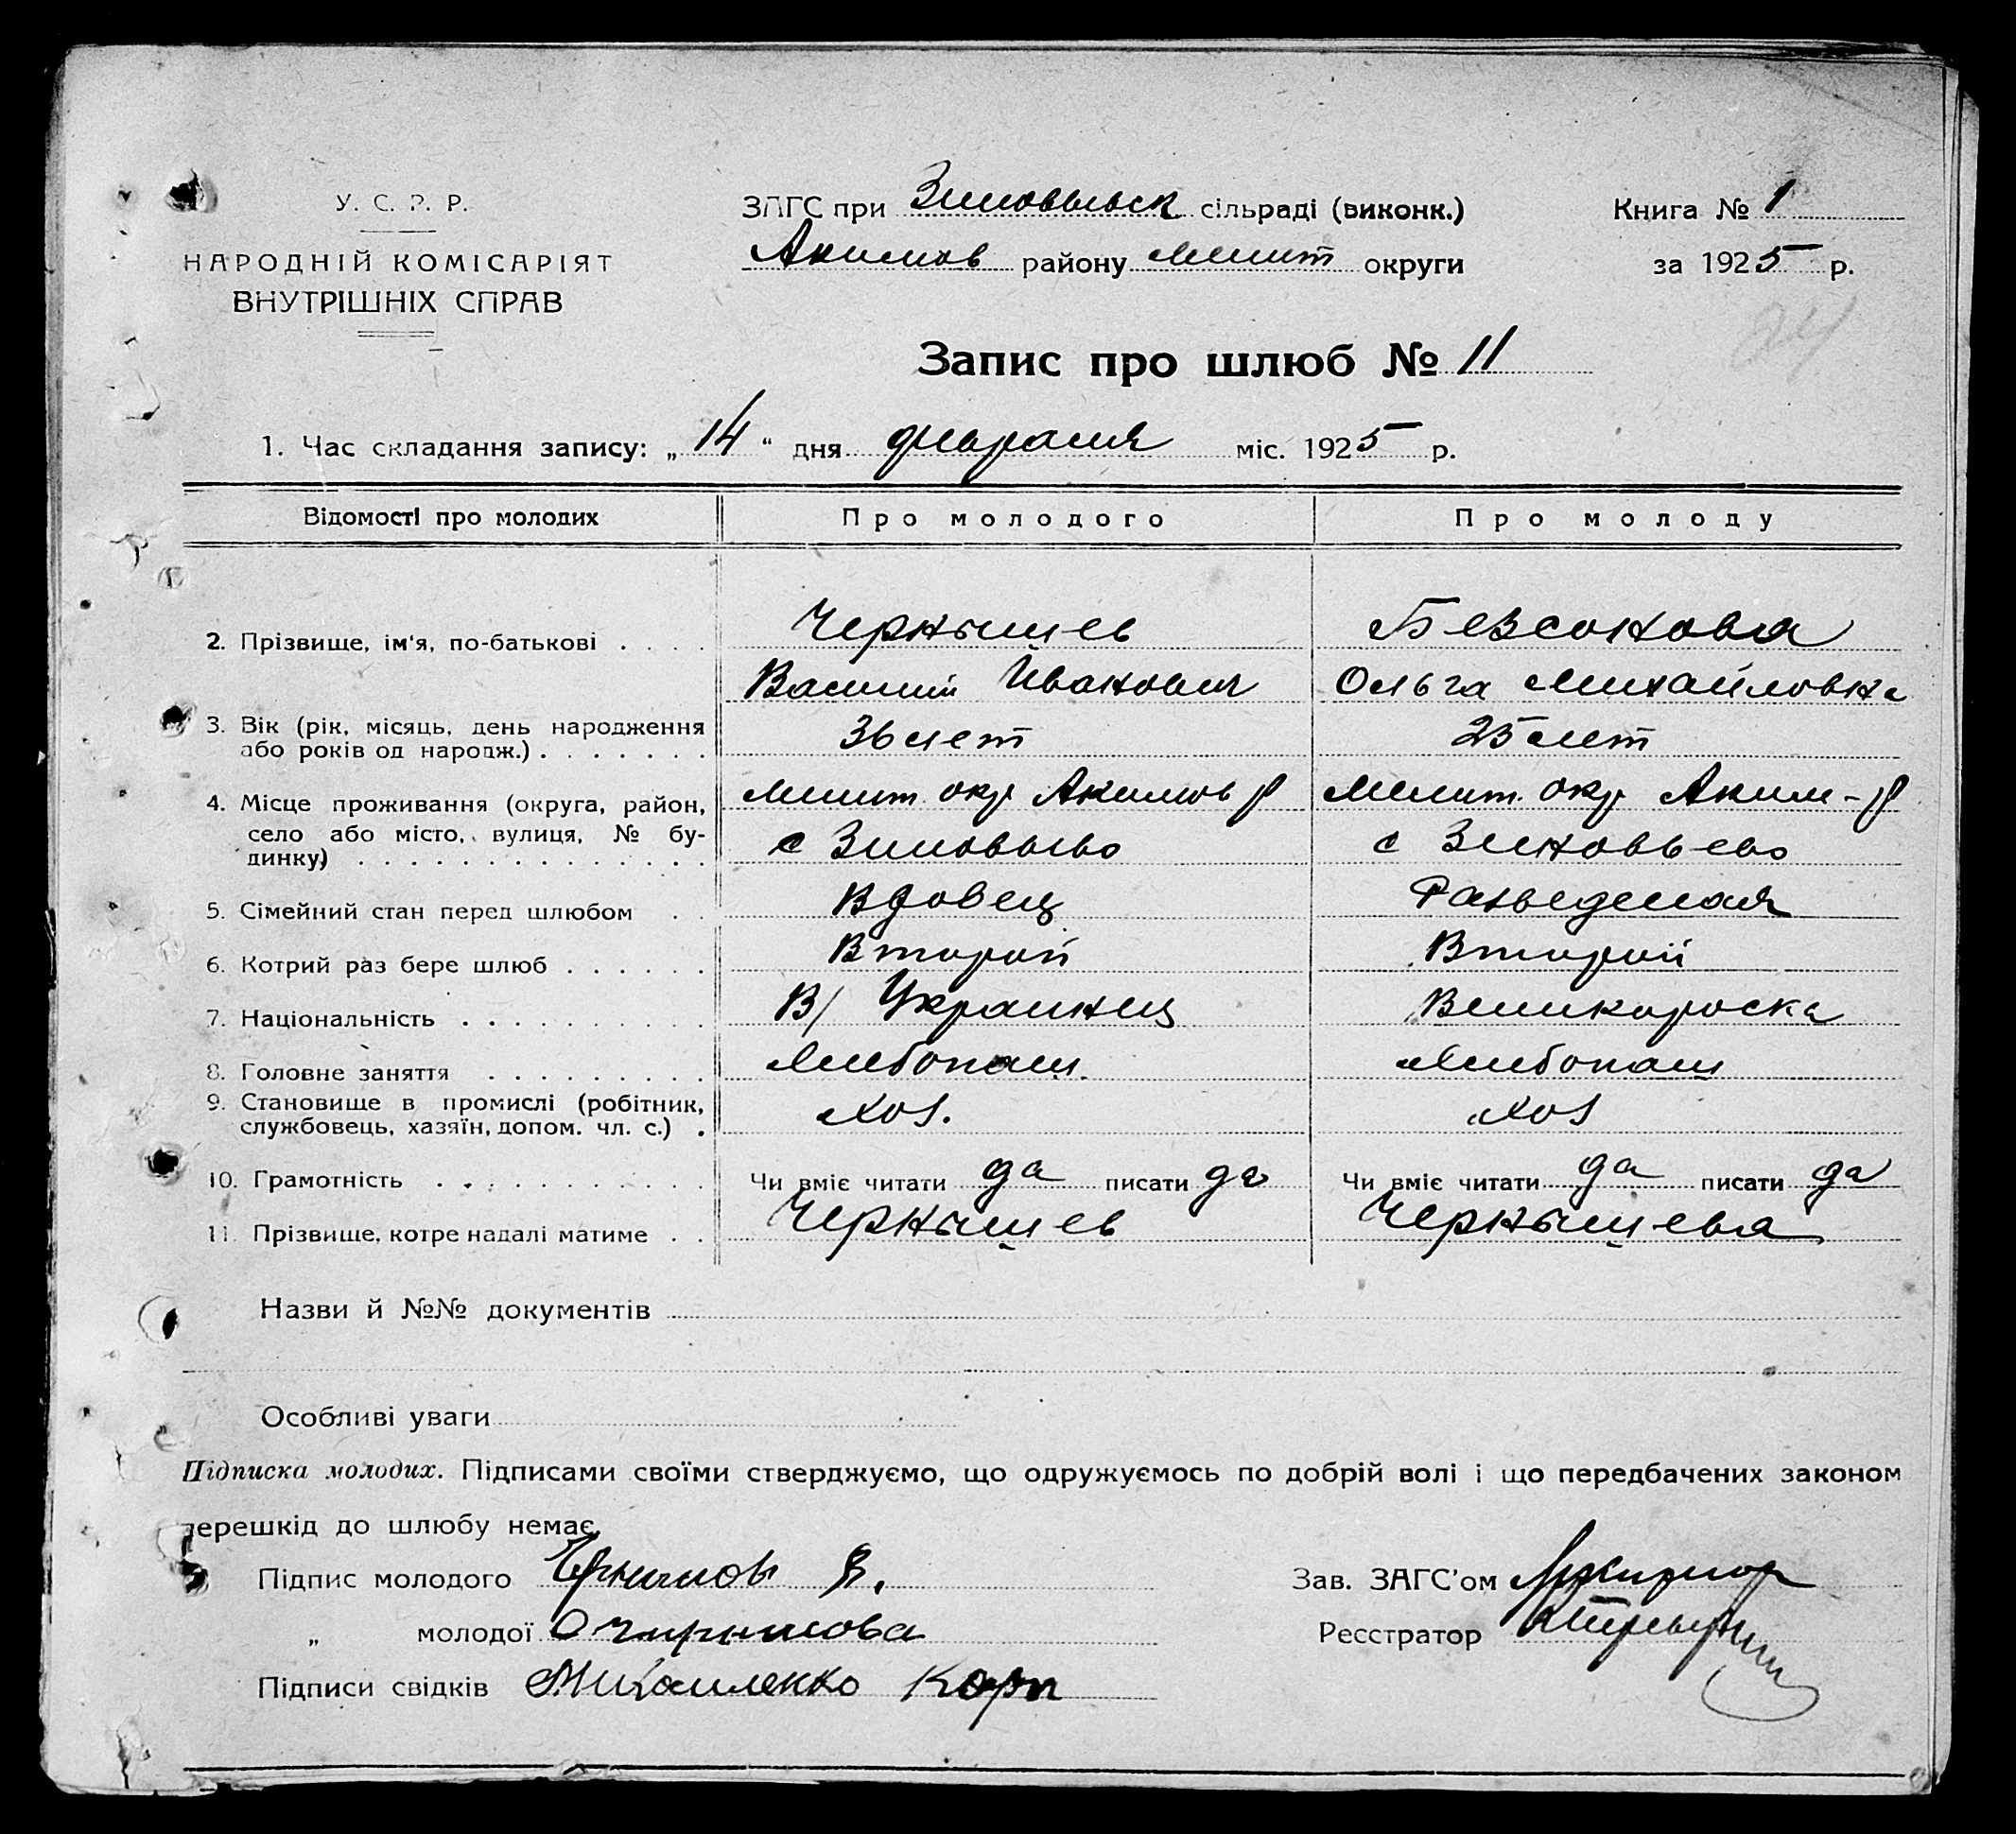 У. С. Р. Р.
НАРОДНІЙ КОМІСАРІЯТ
ВНУТРІШНІХ СПРАВ
ЗАГС при Зиновьевск сільраді (виконк.)
Акимов району Мелит округи
Книга № 1
за 1925 р.
24
Запис про шлюб № 11
1. Час складання запису: „14“ дня февраля міс. 1925 р.
Відомості про молодих Про молодого Про молоду
2. Прізвище, ім'я, по-батькові . . . . Чернышев Безсонова
Василий Иванович Ольга Михайловна
3. Вік (рік, місяць, день народження 36 лет 25 лет
або років од народж.) . . . . . . .
4. Місце проживання (округа, район, Мелит. окр Акимов р Мелит. окр Аким-р
село або місто, вулиця, № бу- с Зиновьево с Зиновьево
динку) . . . . . . . . . . . . . .
5. Сімейний стан перед шлюбом . . Вдовец Разведеная
6. Котрий раз бере шлюб . . . . . . Второй Второй
7. Національність . . . . . . . . . . В/ Украинец Великороска
8. Головне заняття . . . . . . . . . Хлебопаш. Хлебопаш
9. Становище в промислі (робітник, Хоз. Хоз
службовець, хазяїн, допом. чл. с.) .
10. Грамотність . . . . . . . . . . . Чи вміє читати да писати да Чи вміє читати да писати да
11. Прізвище, котре надалі матиме . . Чернышев Чернышева
Назви й №№ документів
Особливі уваги
Підписка молодих. Підписами своїми стверджуємо, що одружуємось по добрій волі і що передбачених законом
перешкід до шлюбу немає.
Підпис молодого В. Зав. ЗАГС'ом
„ молодої О Реєстратор
Підписи свідків Михайленко Карп